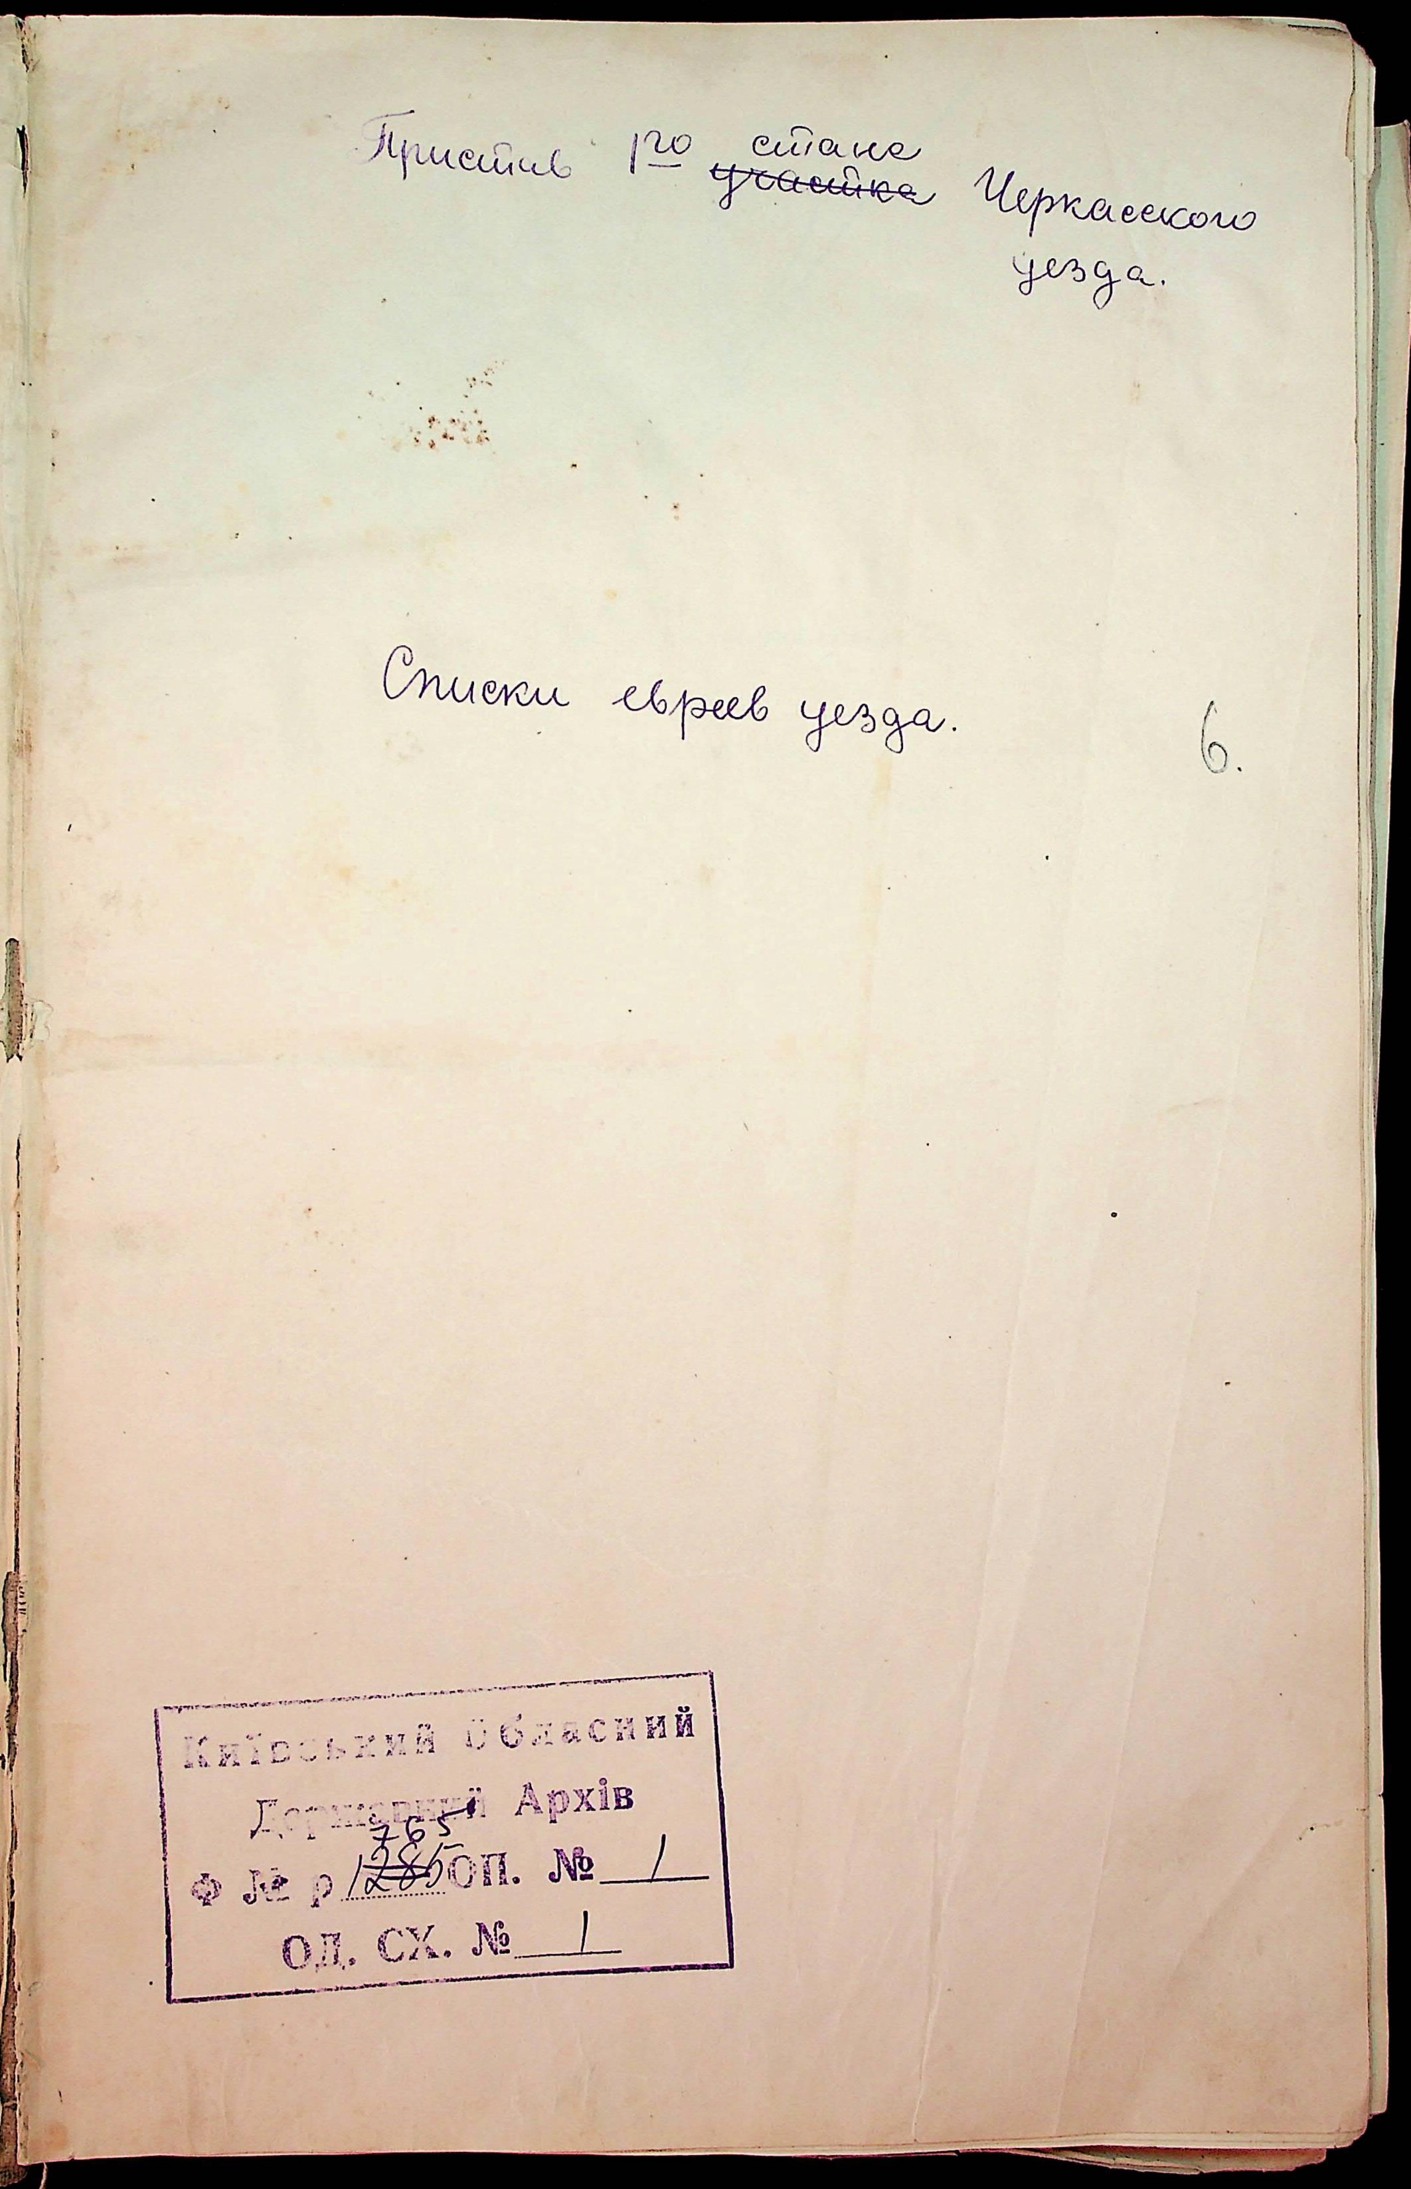 Пристав 1го стана
участка Черкасского
уезда.
Списки евреев уезда.
6.
Київський Обласний
Державний Архів
765
Ф № р 1285 ОП. № 1
ОД. СХ. № 1